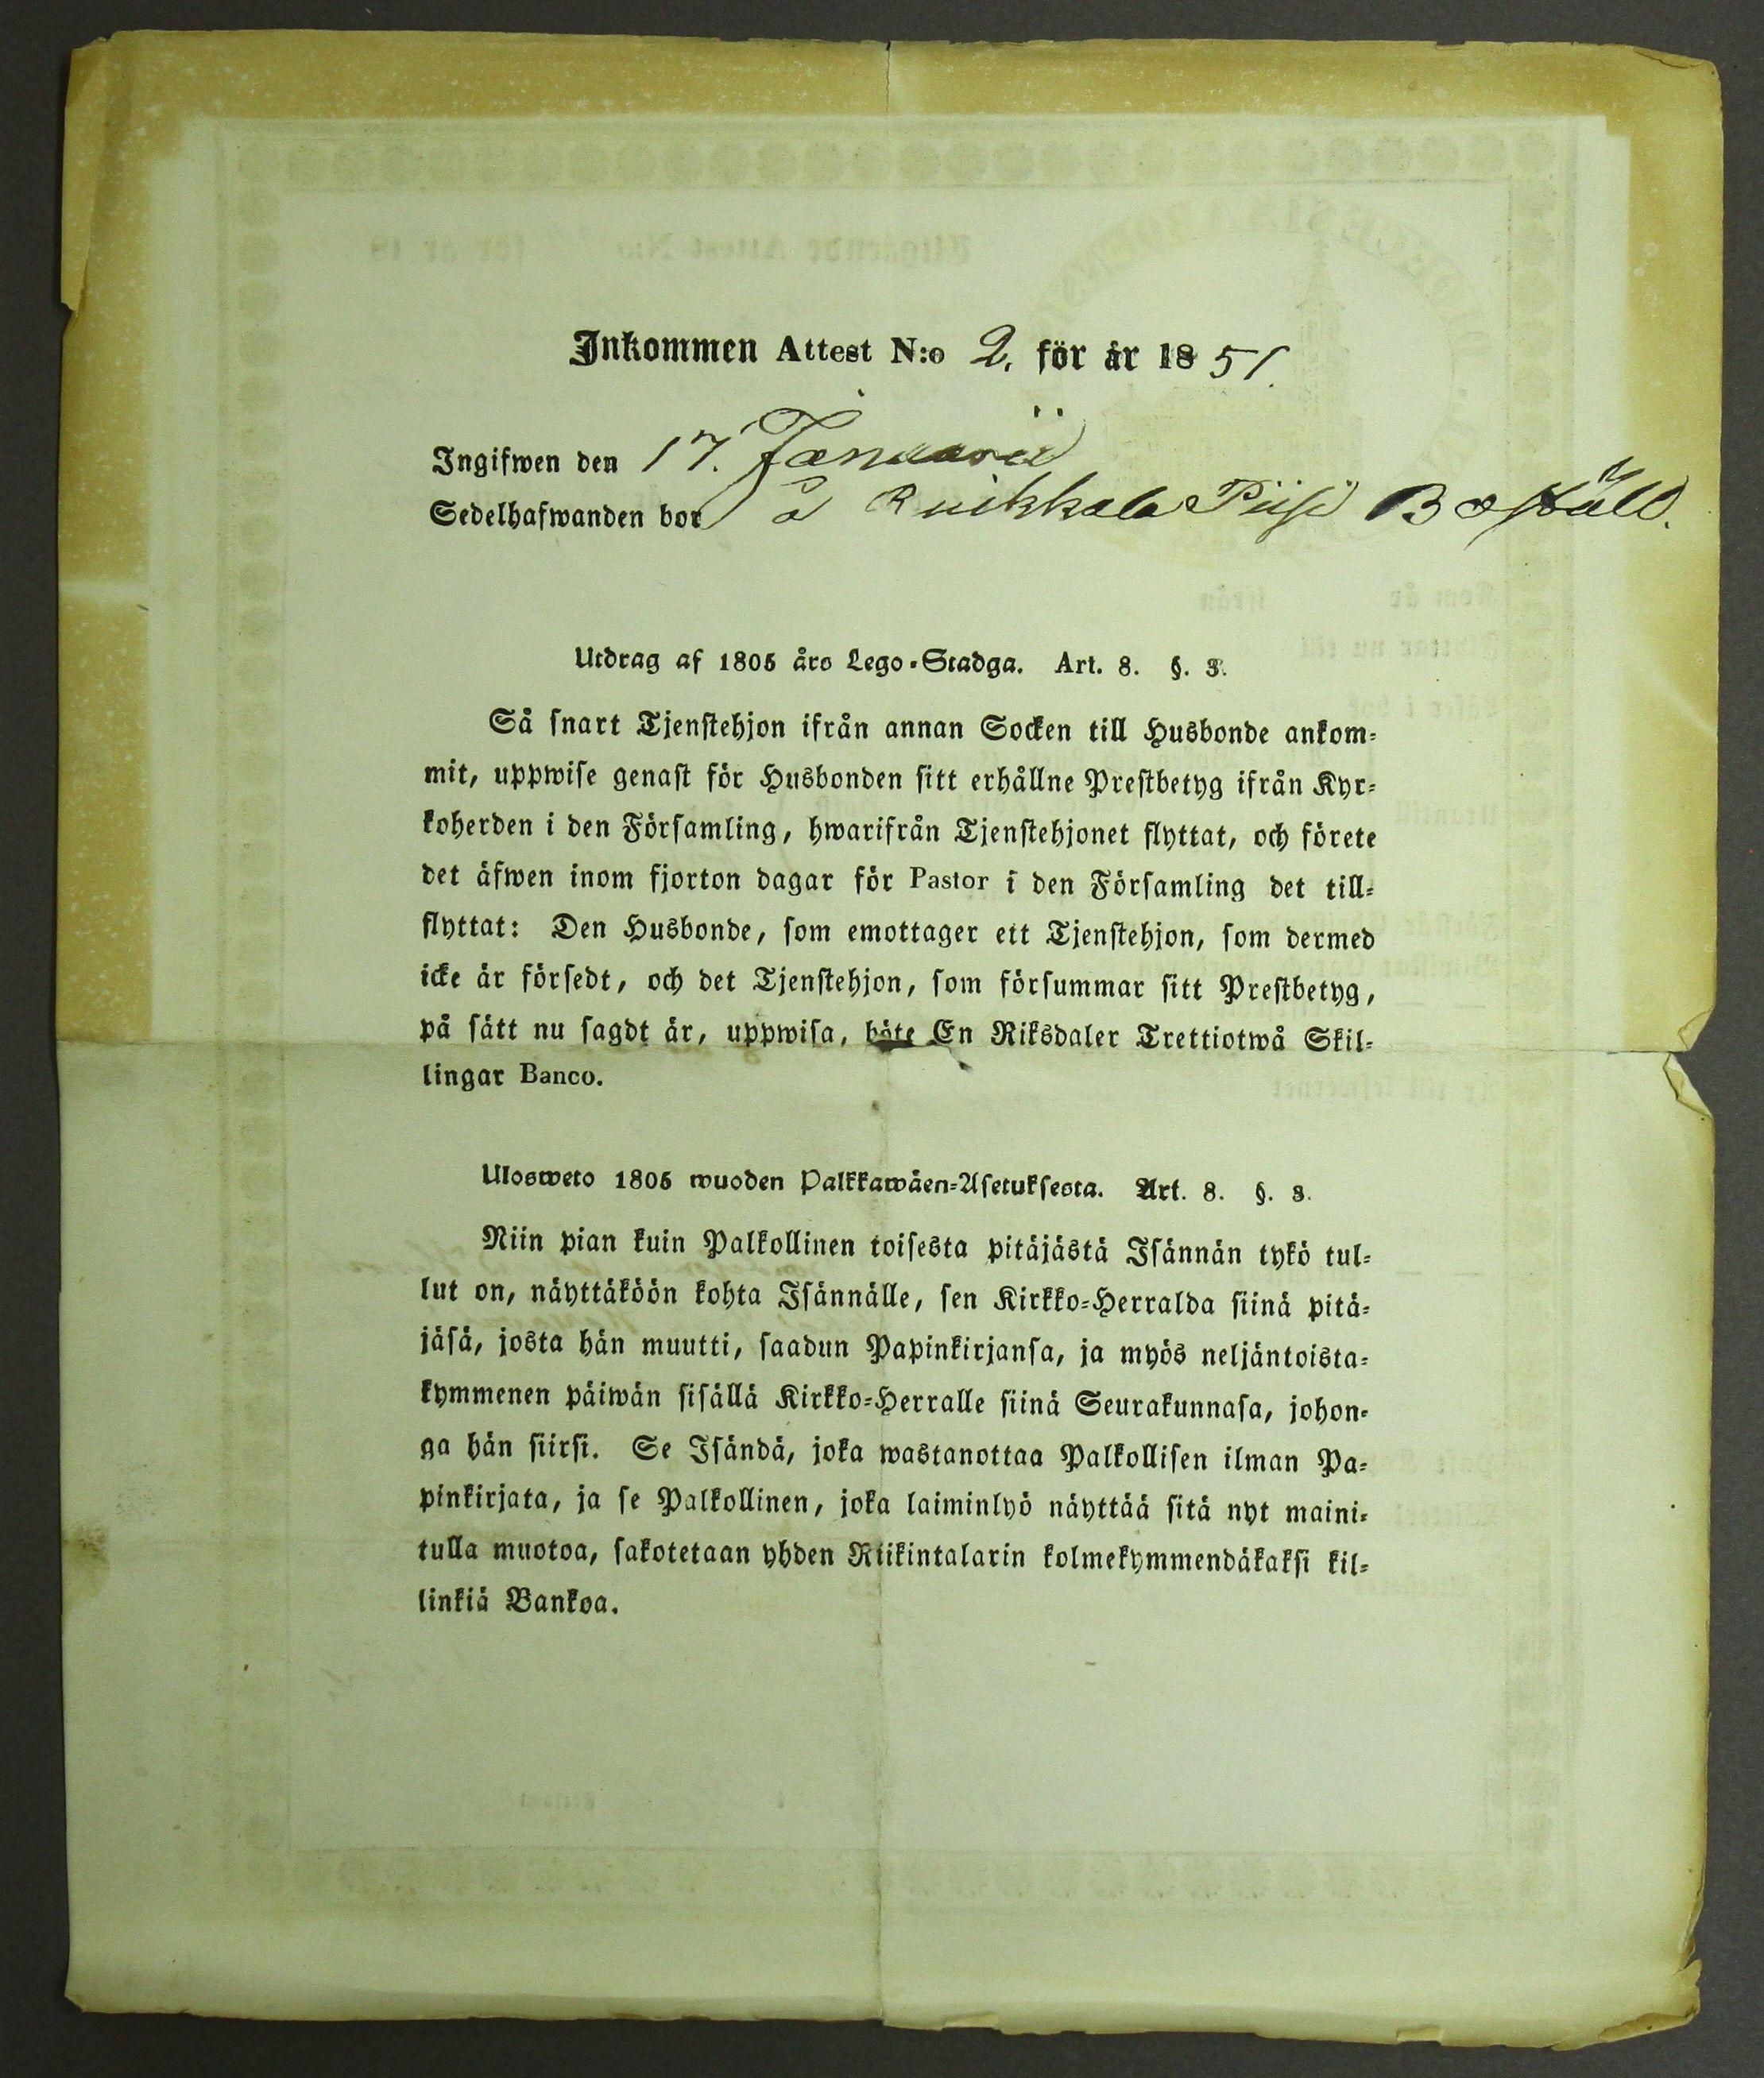 Inkommen Attest N:o 2. för år 1851.
Ingifwen den 17. Januarii
Sedelhafwanden bor på Ruikkala Piisi Boställ.
Utdrag af 1805 års Lego-Stadga. Art. 8. §. 3.
Så snart Tjenstehjon ifrån annan Socken till Husbonde ankom-
mit, uppwise genast för Husbonden sitt erhållne Prestbetyg ifrån Kyr-
koherden i den Församling, hwarifrån Tjenstehjonet flyttat, och förete
det äfwen inom fjorton dagar för Pastor i den Församling det till-
flyttat: Den Husbonde, som emottager ett Tjenstehjon, som dermed
icke är försedt, och det Tjenstehjon, som försummar sitt Prestbetyg,
på sätt nu sagdt är, uppwisa, böte En Riksdaler Trettiotwå Skil-
lingar Banco.
Ulosweto 1805 wuoden Palkkawäen-Asetuksesta. Art. 8. §. 3.
Niin pian kuin Palkollinen toisesta pitäjästä Isännän tykö tul-
lut on, näyttäköön kohta Isännälle, sen Kirkko-Herralda siinä pitä-
jäsä, josta hän muutti, saadun Papinkirjansa, ja myös neljäntoista-
kymmenen päiwän sisällä Kirkko-Herralle siinä Seurakunnasa, johon-
ga hän siirsi. Se Isändä, joka wastanottaa Palkollisen ilman Pa-
pinkirjata, ja se Palkollinen, joka laiminlyö näyttää sitä nyt maini-
tulla muotoa, sakotetaan yhden Riikintalarin kolmekymmendäkaksi kil-
linkiä Bankoa.